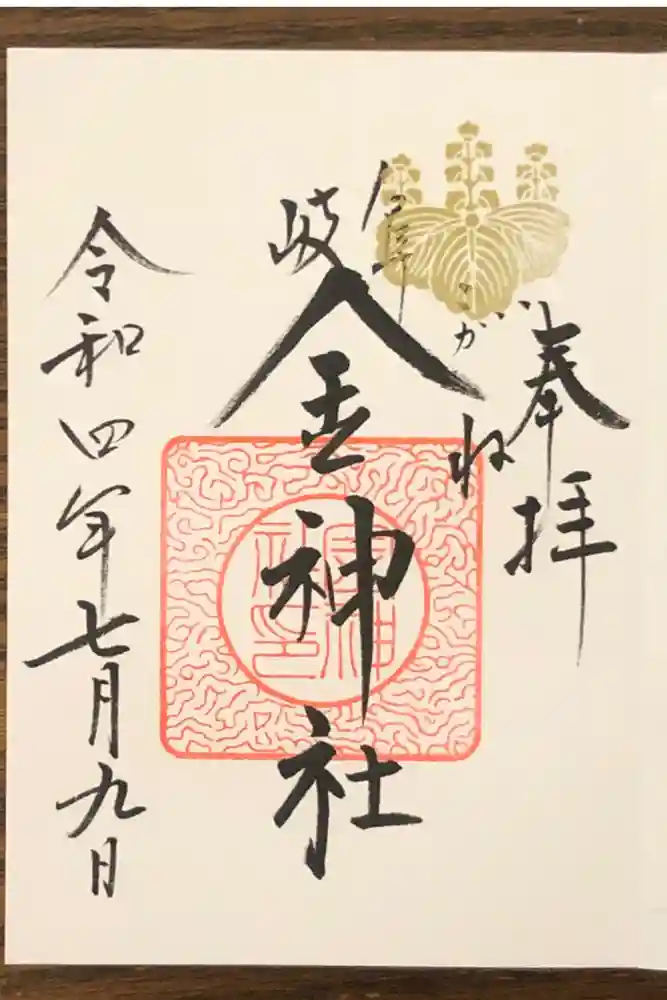 奉拝
岐阜
こがね
金神社
金神社印
令和四年七月九日